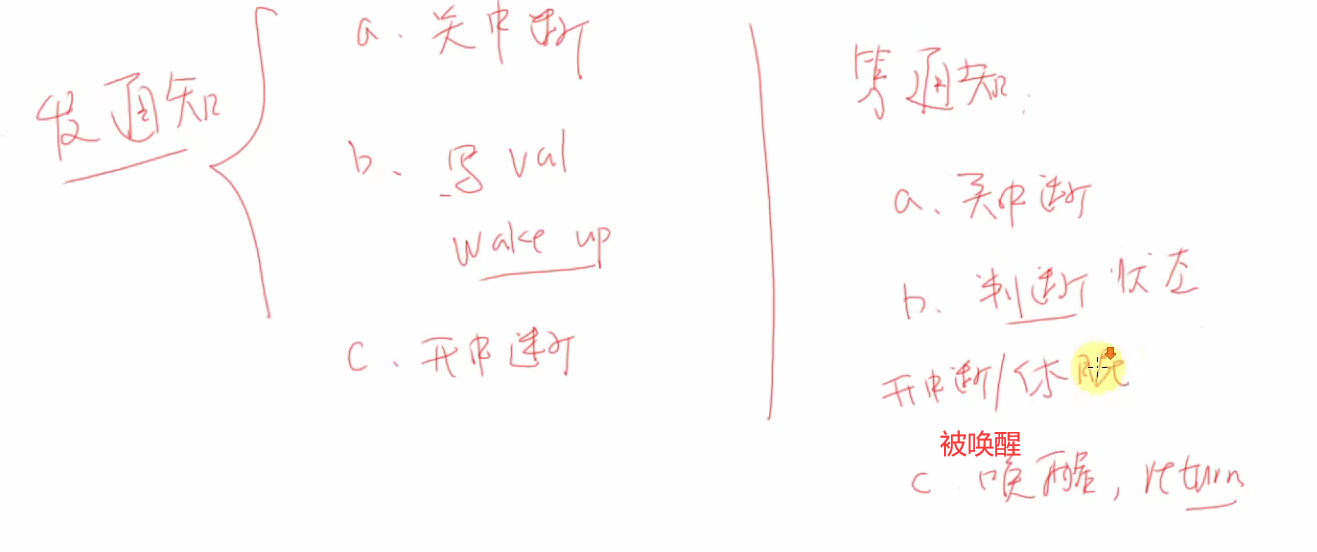 发通知
a. 关中断
b、写 val
wake up
c、开中断
等通知.
a、关中断
b、判断 状态
开中断/休眠
被唤醒
c 唤醒, return